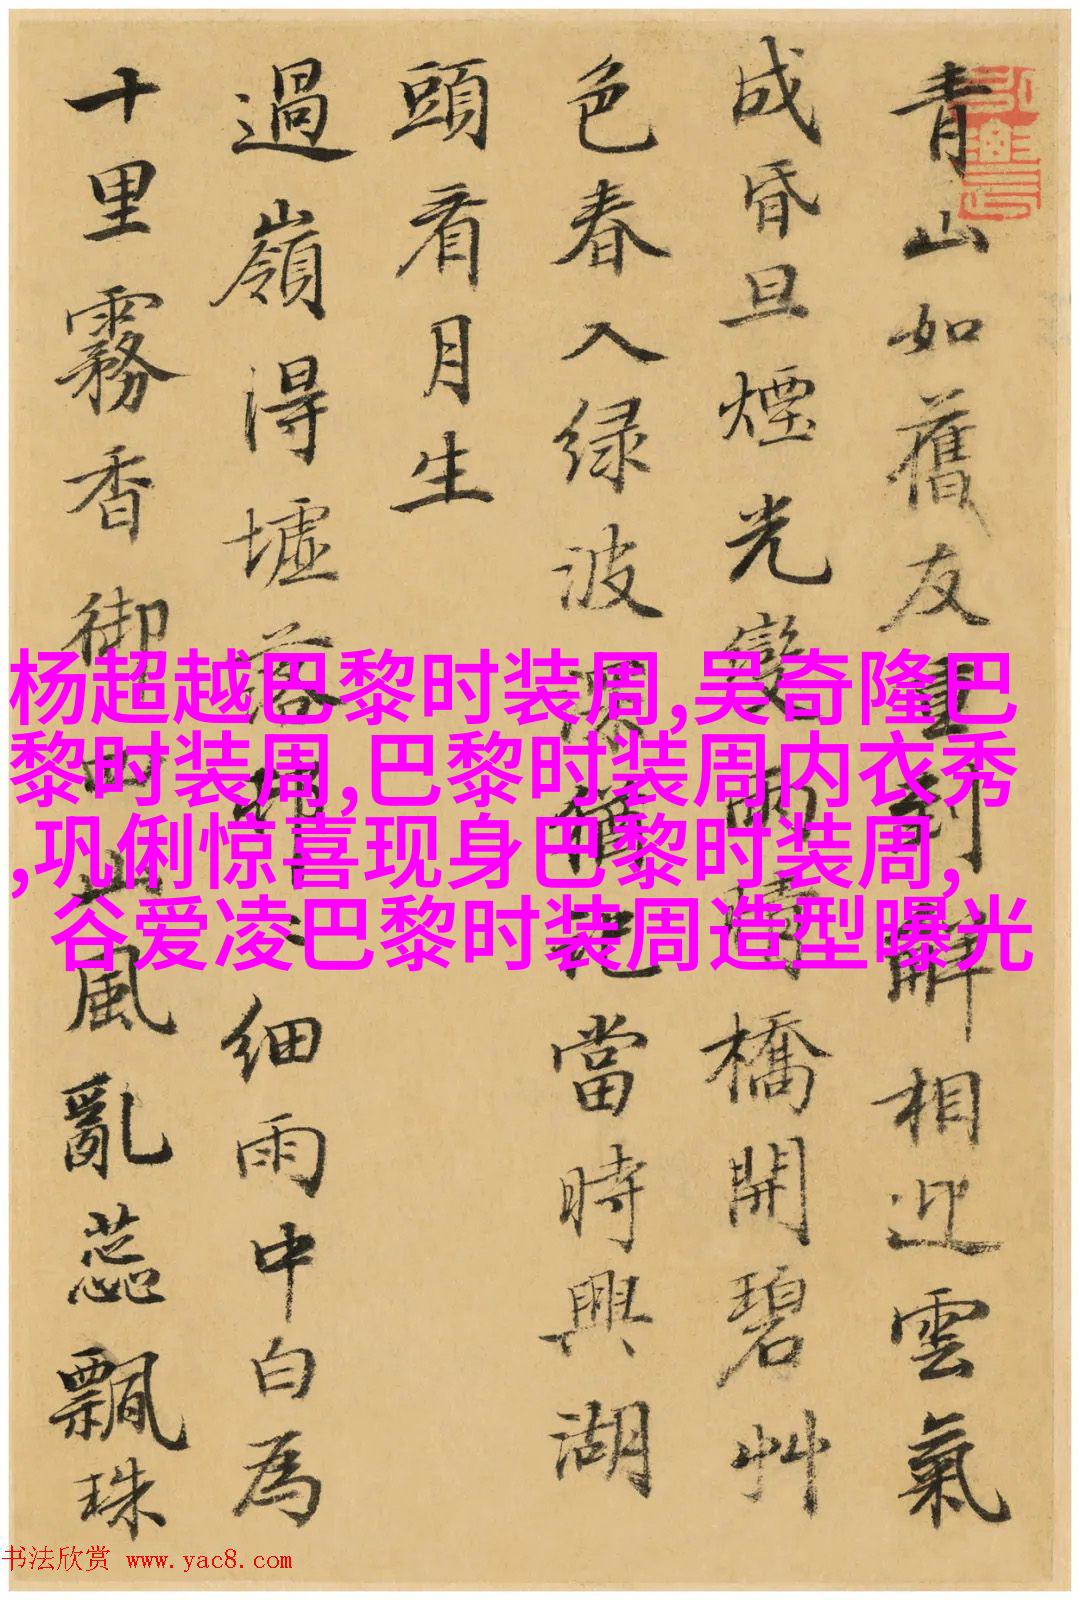 青山如舊友重到解相迎雲氣
成昏旦煙光變雨晴橋開碧艸
色春入緑波僧記當時興湖
頭看月生
過嶺得墟落細雨中白為
十里霧香御山風亂蕊飄珠
杨超越巴黎时装周,吴奇隆巴
黎时装周,巴黎时装周内衣秀
,巩俐惊喜现身巴黎时装周,
谷爱凌巴黎时装周造型曝光
书法欣赏 www.yac8.com